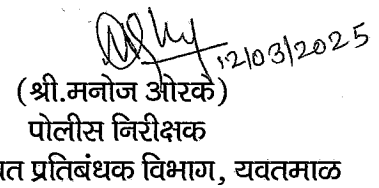 12/03/2025
(श्री.मनोज ओरके)
पोलीस निरीक्षक
प्रतिबंधक विभाग, यवतमाळ